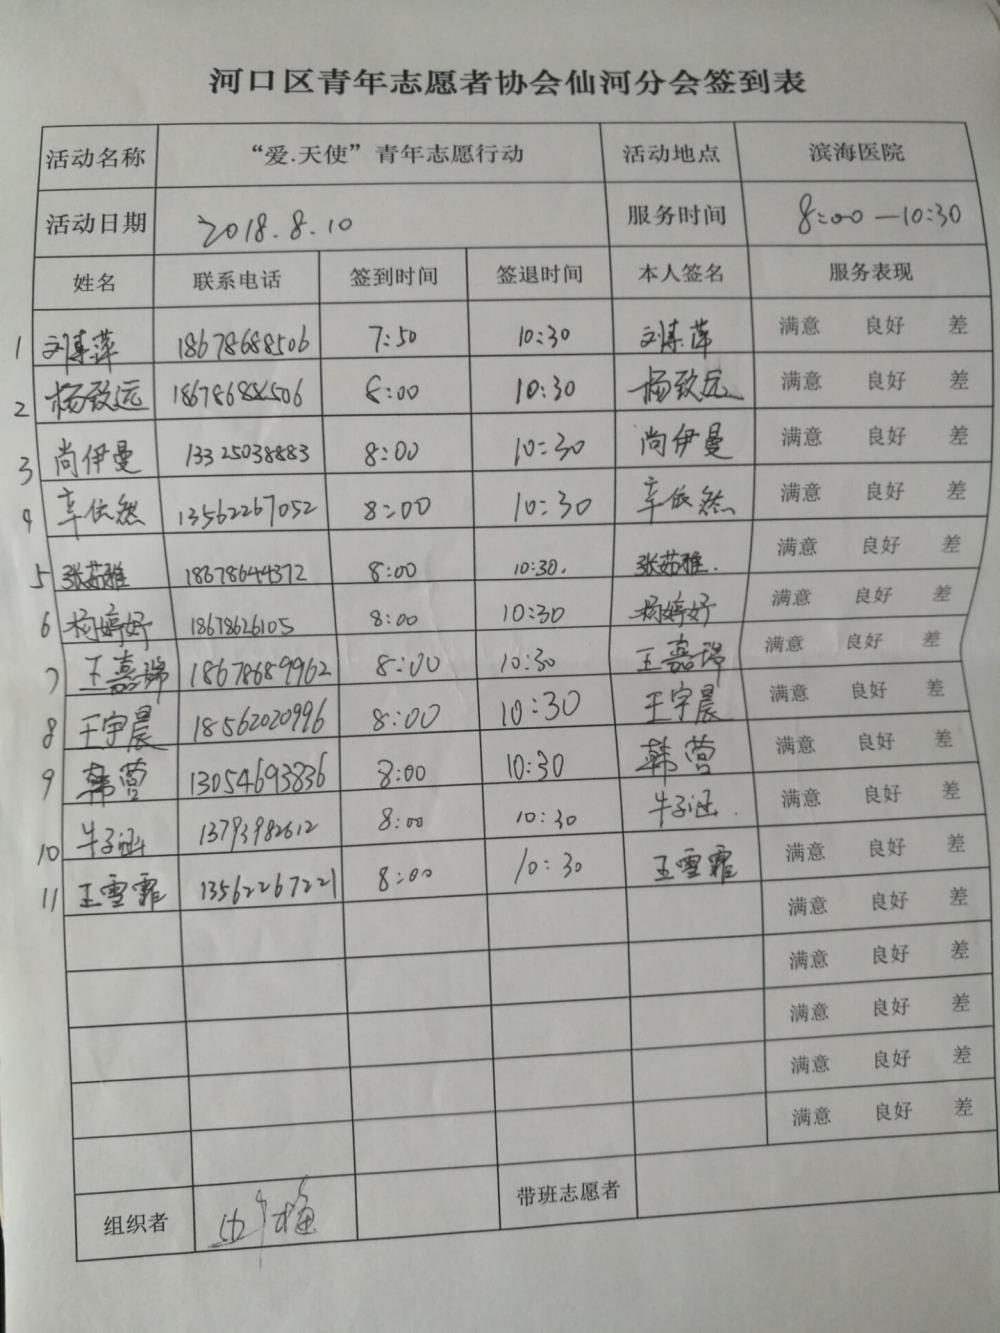 河口区青年志愿者协会仙河分会签到表
活动名称 “爱.天使”青年志愿行动 活动地点 滨海医院
活动日期 2018.8.10 服务时间 8:00—10:30
姓名 联系电话 签到时间 签退时间 本人签名 服务表现
1 刘其萍 18678688506 7:50 10:30 刘其萍 满意 良好 差
2 杨致远 18678688506 8:00 10:30 杨致远 满意 良好 差
3 尚伊曼 13325038883 8:00 10:30 尚伊曼 满意 良好 差
4 辛依然 13562267052 8:00 10:30 辛依然 满意 良好 差
5 张茹雅 18678644372 8:00 10:30. 张茹雅. 满意 良好 差
6 杨婷妤 18678626105 8:00 10:30 杨婷妤 满意 良好 差
7 王嘉瑞 18678689962 8:00 10:30 王嘉瑞 满意 良好 差
8 王宇晨 18562020996 8:00 10:30 王宇晨 满意 良好 差
9 韩营 13054693836 8:00 10:30 韩营 满意 良好 差
10 牛子涵 13793982612 8:00 10:30 牛子涵. 满意 良好 差
11 王雪霏 13562267221 8:00 10:30 王雪霏 满意 良好 差
满意 良好 差
满意 良好 差
满意 良好 差
满意 良好 差
满意 良好 差
组织者 带班志愿者